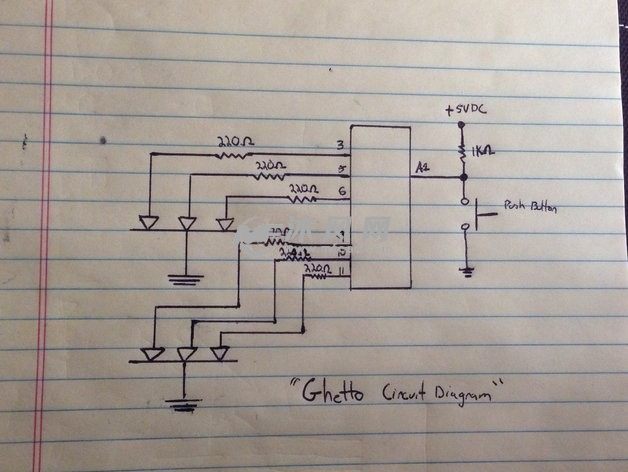 +5VDC
1KΩ
220Ω 3
220Ω 5
220Ω 6
A1
Push Button
10
220Ω 11
"Ghetto Circuit Diagram"